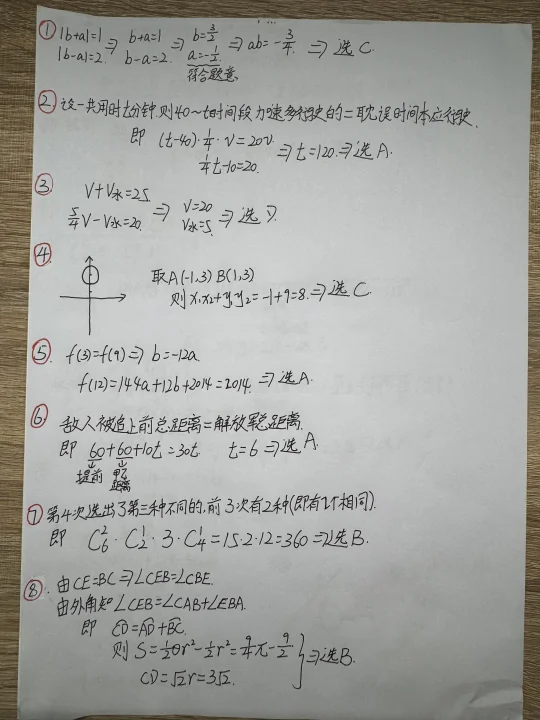 ① |b+a|=1 ⇒ b+a=1 ⇒ b=3/2 ⇒ ab=-3/4 ⇒ 选C.
|b-a|=2. b-a=2. a=-1/2
符合题意.
② 设一共用时t分钟,则40~t时间段加速多行驶的=耽误时间本应行驶.
即 (t-40)·1/4·v=20v.
1/4t-10=20. ⇒t=120.⇒选A.
③ V+V水=25
5/4V-V水=20. ⇒ V=20 V水=5. ⇒选D.
④
取A(-1,3) B(1,3)
则x₁x₂+y₁y₂=-1+9=8.⇒选C.
⑤ f(3)=f(9)⇒b=-12a
f(12)=144a+12b+2014=2014. ⇒选A.
⑥ 敌人被追上前总距离=解放军总距离.
即 60+60+10t=30t. t=6⇒选A.
提前 甲乙
距离
⑦ 第4次选出了第三种不同的,前3次有2种(即有1个相同).
即 C₆²·C₂¹·3·C₄¹=15·2·12=360⇒选B.
⑧. 由CE=BC⇒∠CEB=∠CBE.
由外角知∠CEB=∠CAB+∠EBA.
即 CD=AD+BC.
则 S=1/2θr²-1/2r²=9/4π-9/2
CD=√2r=3√2. ⇒选B.